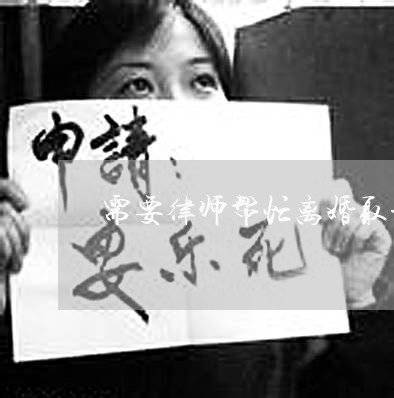 申請：
需要律师帮忙离婚取
安乐死